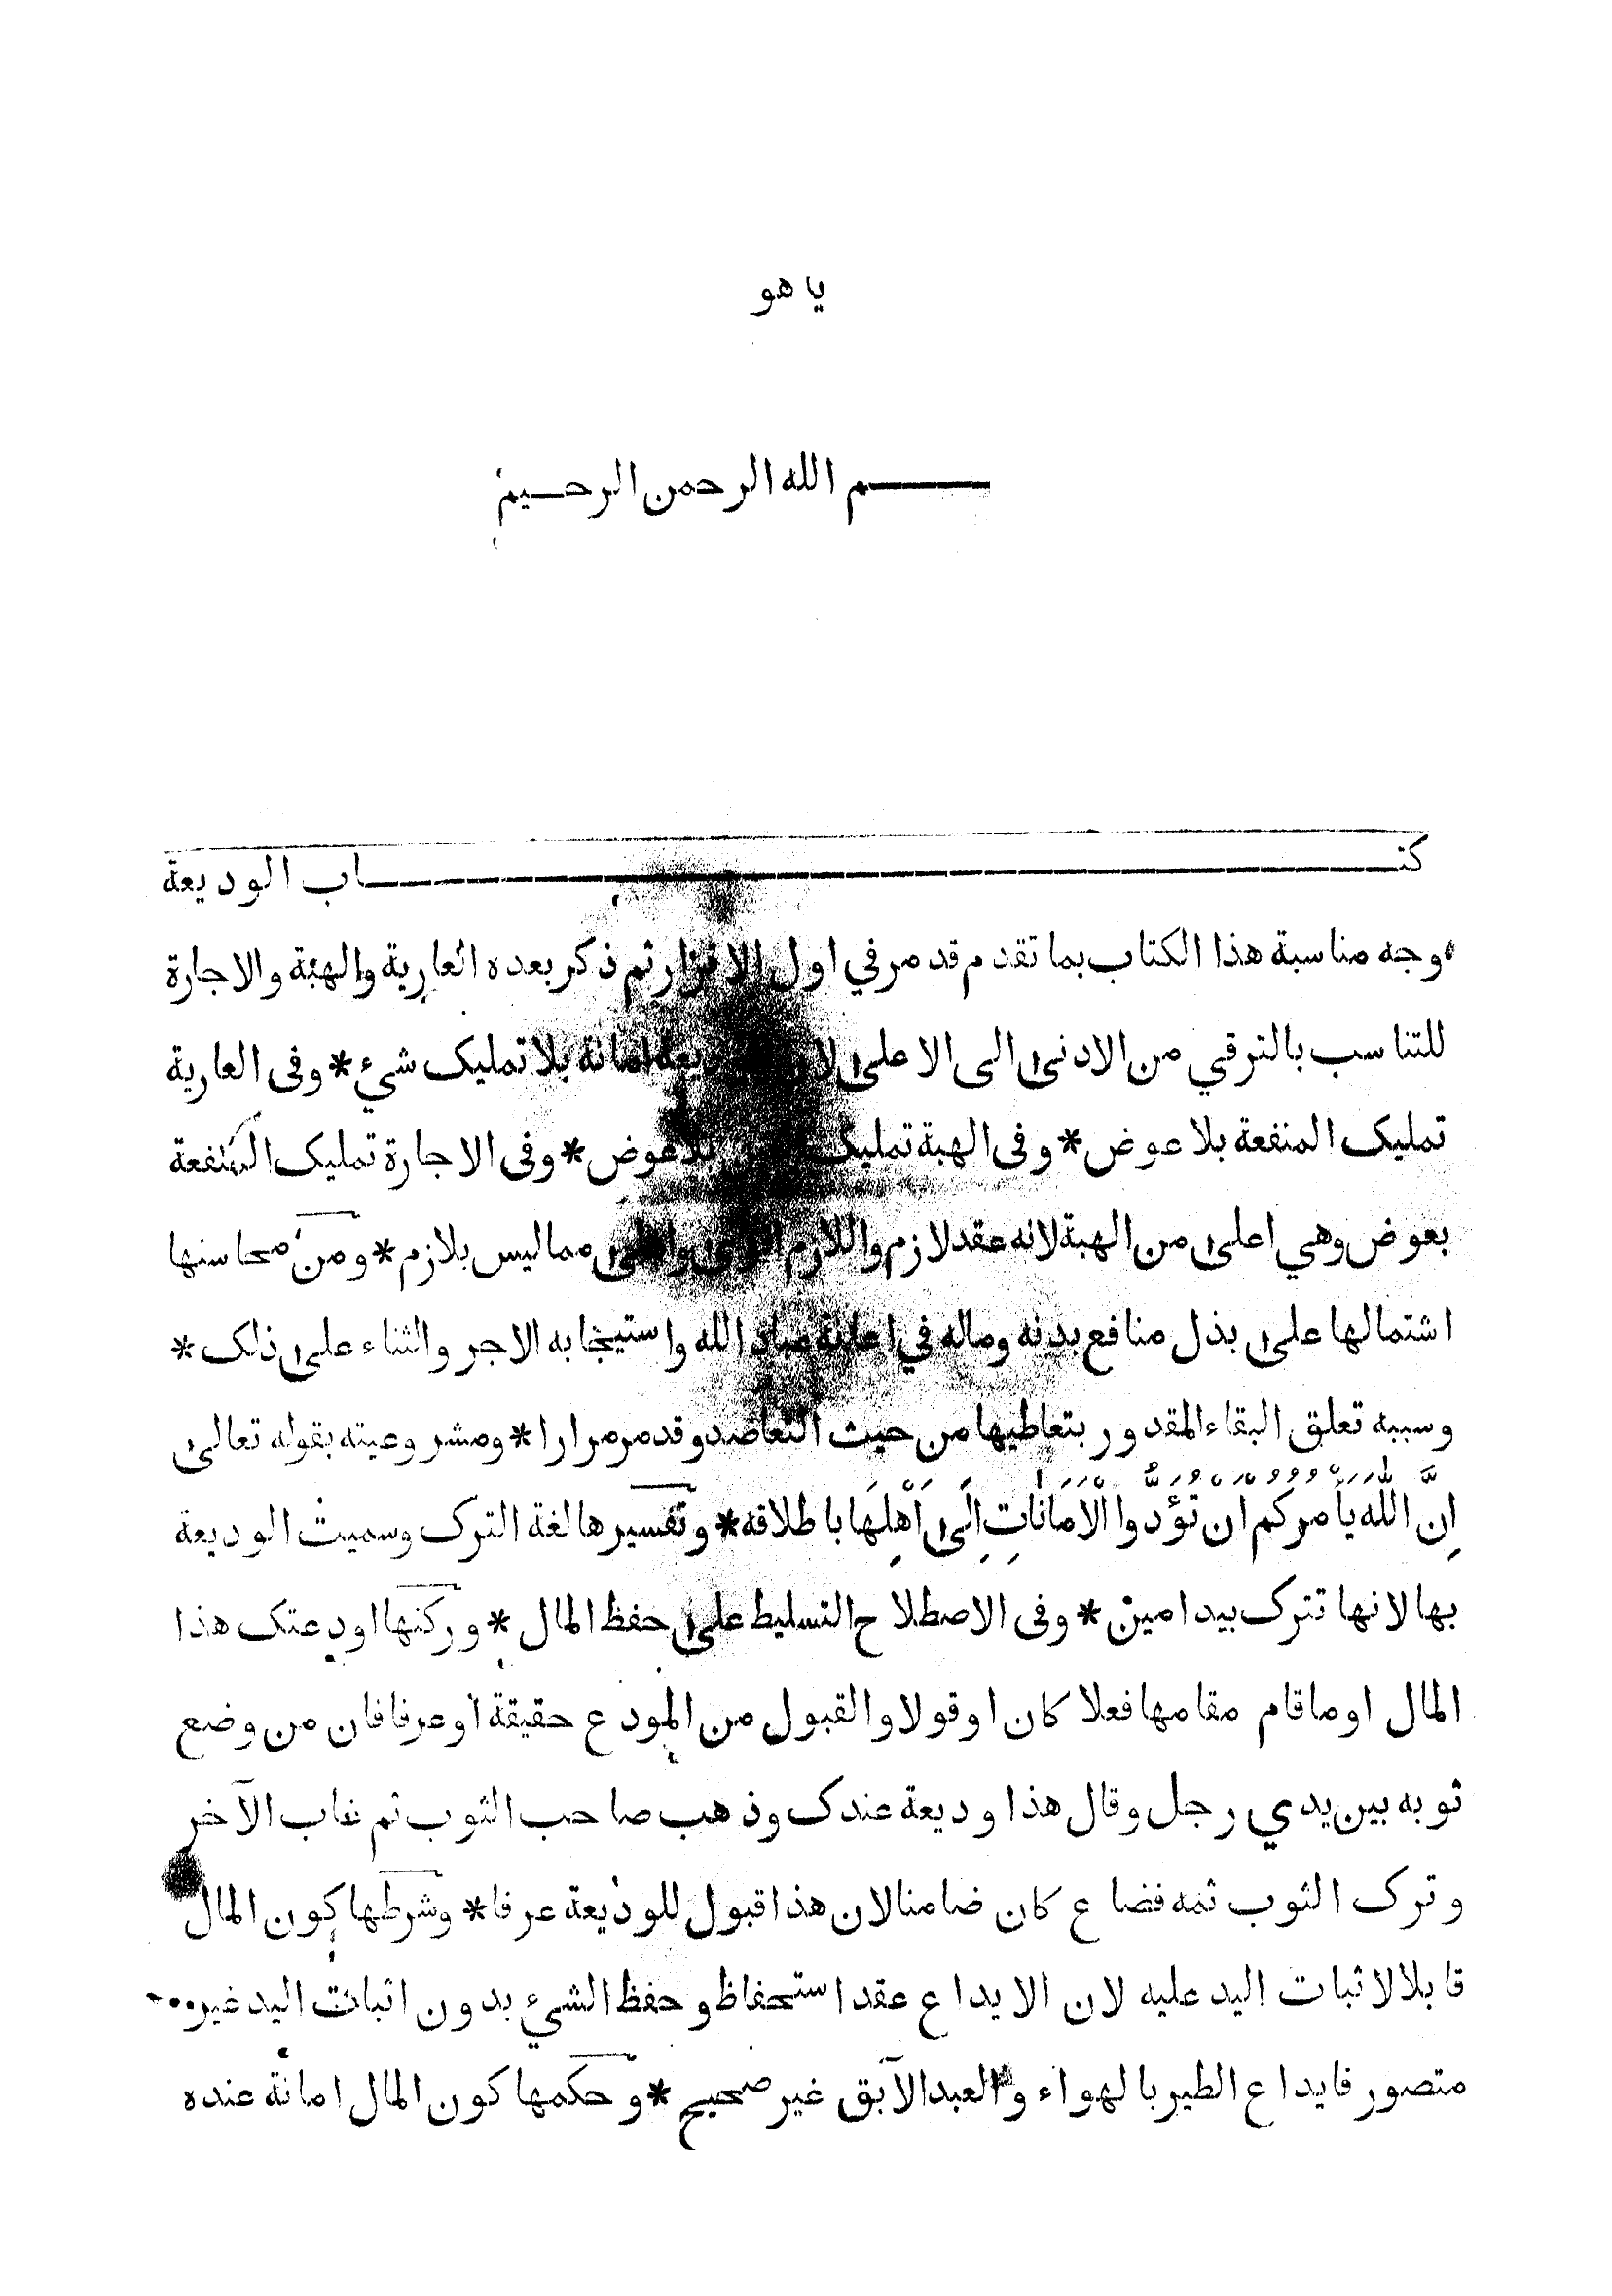 يا هو
ـم الله الرحمن الرحيم
كتـاب الوديعة
وجه مناسبة هذا الكتاب بما تقدم قد مر في اول الاقرار ثم ذكر بعده العارية والهبة والاجارة
للتناسب بالترقي من الادنى الى الاعلى امانة بلا تمليك شيء * وفى العارية
تمليك المنفعة بلا عوض * وفى الهبة تمليك بلا عوض * وفى الاجارة تمليك المنفعة
بعوض وهي اعلى من الهبة لانه عقد لازم واللازم مما ليس بلازم * ومن محاسنها
اشتمالها على بذل منافع بدنه وماله في اعانة عباد الله واستيجابه الاجر والثناء على ذلك *
وسببه تعلق البقاء المقدور بتعاطيها من حيث التعاضد وقد مر مرارا * ومشروعيته بقوله تعالى
اِنَّ اللّٰهَ يَأْمُرُكُمْ اَنْ تُؤَدُّوا الْاَمَانَاتِ اِلَى اَهْلِهَا باطلاقه * وتفسيرها لغة الترك وسميت الوديعة
بها لانها تترك بيد امين * وفى الاصطلاح التسليط على حفظ المال * وركنها اودعتك هذا
المال او ما قام مقامها فعلا كان او قولا والقبول من المودع حقيقة او عرفا فان من وضع
ثوبه بين يدي رجل وقال هذا وديعة عندك وذهب صاحب الثوب ثم غاب الآخر
وترك الثوب ثمه فضاع كان ضامنا لان هذا قبول للوديعة عرفا * وشرطها كون المال
قابلا لاثبات اليد عليه لان الايداع عقد استحفاظ وحفظ الشيء بدون اثبات اليد غير
متصور فايداع الطير بالهواء والعبد الآبق غير صحيح * وحكمها كون المال امانة عنده